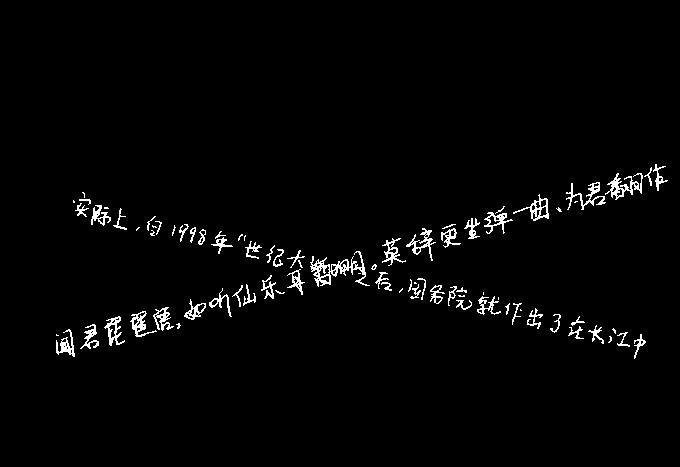 实际上，自1998年“世纪大之后，国务院就作出了在长江中
闻君琵琶语，如听仙乐耳暂明。莫辞更坐弹一曲、为君翻作